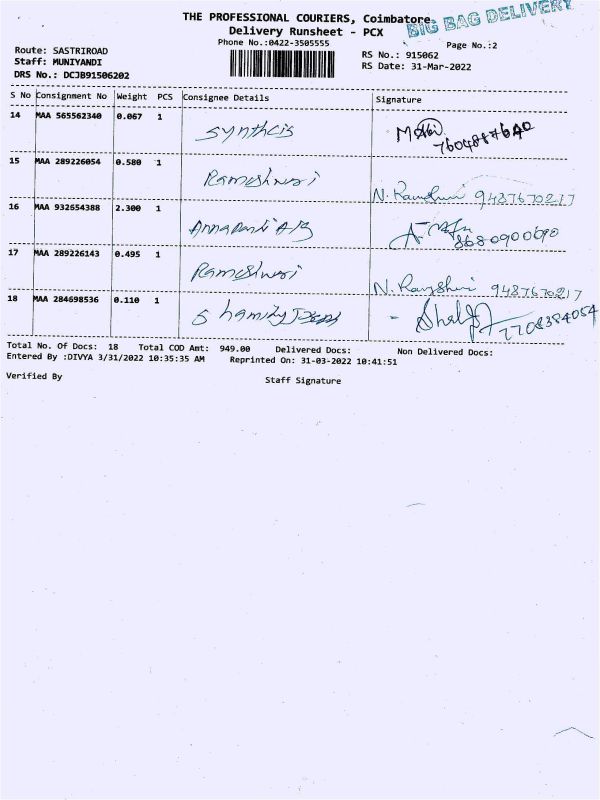 THE PROFESSIONAL COURIERS, Coimbatore.
BIG BAG DELIVERY
Delivery Runsheet - PCX
Phone No.:0422-3505555
Page No.:2
Route: SASTRIROAD
RS No.: 915062
Staff: MUNIYANDI
RS Date: 31-Mar-2022
DRS No.: DCJB91506202
S No Consignment No Weight PCS Consignee Details Signature
14 MAA 565562340 0.067 1 Synthesis 7604887640
15 MAA 289226054 0.580 1 Rameshwari N. 9487670217
16 MAA 932654388 2.300 1 8680900690
17 MAA 289226143 0.495 1 Rameshwari N. 9487670217
18 MAA 284698536 0.110 1 7708384054
Total No. Of Docs: 18 Total COD Amt: 949.00 Delivered Docs: Non Delivered Docs:
Entered By :DIVYA 3/31/2022 10:35:35 AM Reprinted On: 31-03-2022 10:41:51
Verified By Staff Signature